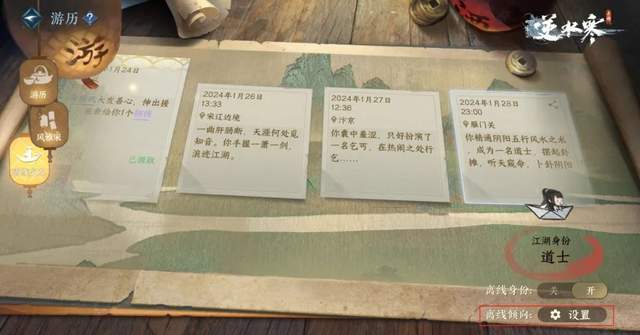 游历
逆水寒
游历
风雅录
1月24日
大发善心,伸出援
给你1个
已领取
2024年1月26日
13:33
宋辽边境
一曲肝肠断,天涯何处觅
知音。你手握一萧一剑,
浪迹江湖。
2024年1月27日
12:36
汴京
你囊中羞涩,只好扮演了
一名乞丐,在热闹之处行
乞......
2024年1月28日
23:00
雁门关
你精通阴阳五行风水之术
,成为一名道士,摆起卦
摊,听天窥命,卜卦阴阳
江湖身份
道士
离线身份:
关
开
离线倾向:
设置